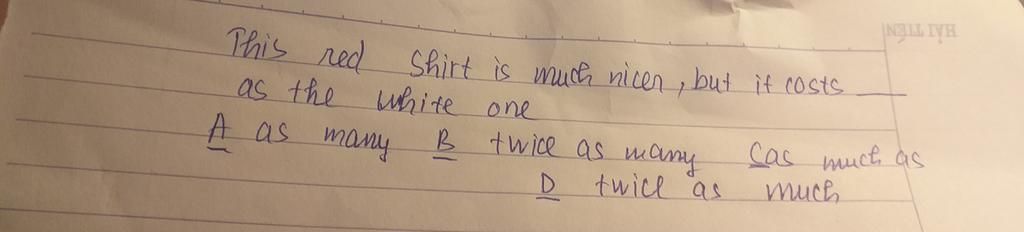 HẢI TIẾN
This red shirt is much nicer, but it costs ____
as the white one
A as many B twice as many C as much as
D twice as much